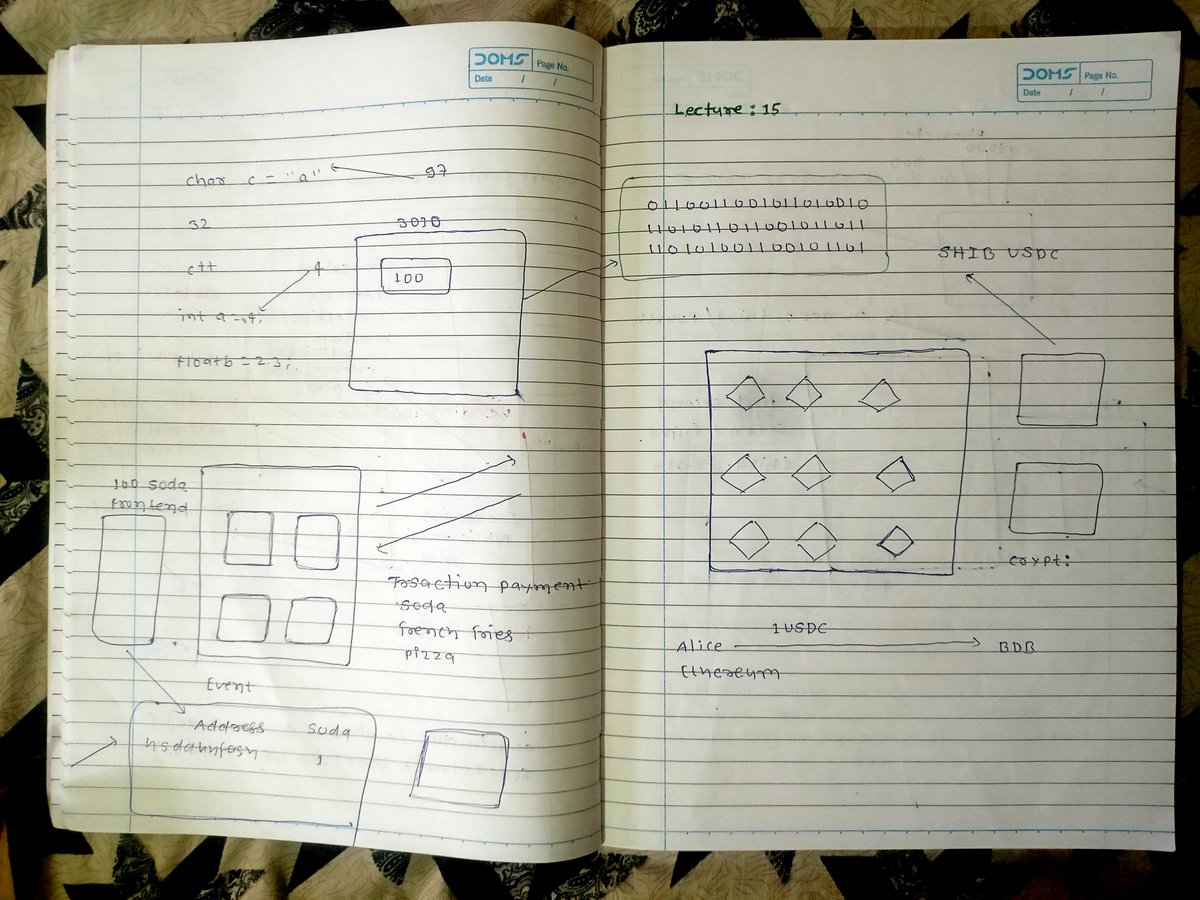 DOMS Page No.
Date / /
char c = "a" 97
32
3010
c++ 4
100
int a = 4;
float b = 2.3;
100 soda
frontend
Trsaction payment
soda
french fries
pizza
Event
Address Soda
hsdahnfash 1
DOMS Page No.
Date / /
Lecture : 15
0110011001011010010
1101011011001011011
110101001100101101
SHIB USDC
crypt:
1 USDC
Alice BOB
Ethereum